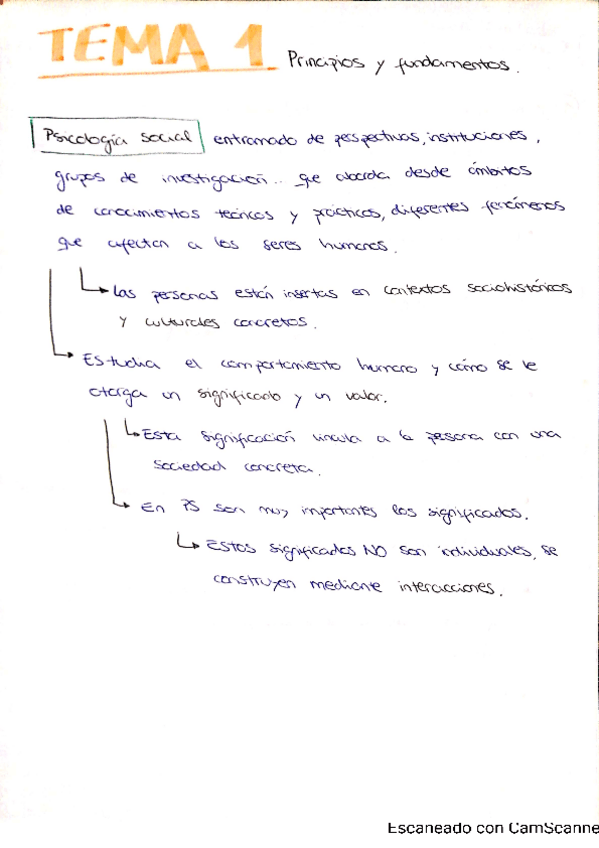 TEMA 1 Principios y fundamentos.
Psicología social entramado de perspectivas, instituciones,
grupos de investigación.. que aborda desde ámbitos
de conocimientos teóricos y prácticos, diferentes fenómenos
que afectan a los seres humanos.
Las personas están insertas en contextos sociohistóricos
y culturales concretos.
Estudia el comportamiento humano y cómo se le
otorga un significado y un valor.
Esta significación vincula a la persona con una
sociedad concreta.
En PS son muy importantes los significados.
Estos significados NO son individuales, se
construyen mediante interacciones.
Escaneado con CamScanne